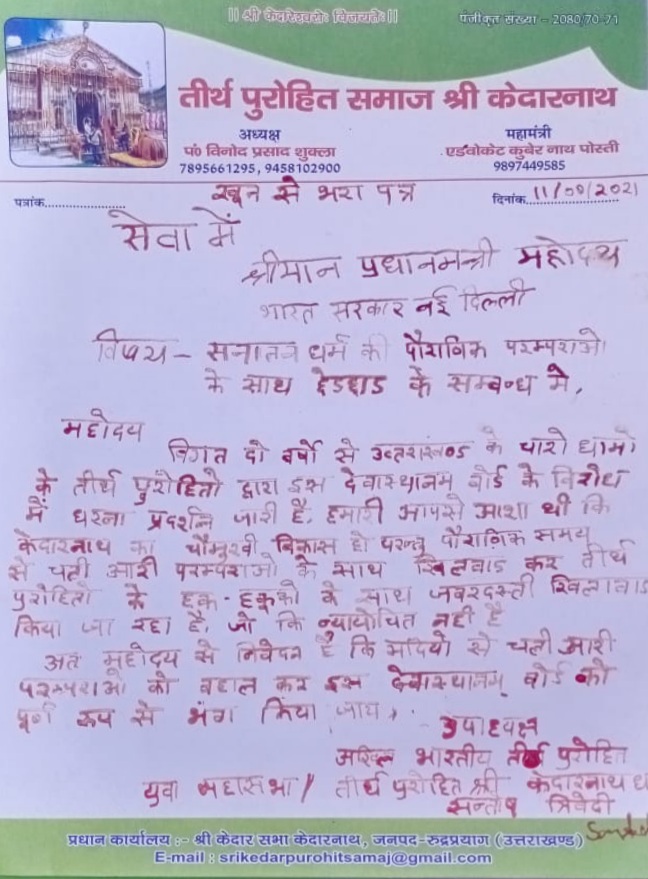 || श्री केदारेश्वरोः विजयतेः ||
पंजीकृत संख्या - 2080/70-71
तीर्थ पुरोहित समाज श्री केदारनाथ
अध्यक्ष
पं० विनोद प्रसाद शुक्ला
7895661295, 9458102900
महामंत्री
एडवोकेट कुबेर नाथ पोस्ती
9897449585
पत्रांक....................
खून से भरा पत्र
दिनांक 11/09/2021
सेवा में
श्रीमान प्रधानमन्त्री महोदय
भारत सरकार नई दिल्ली
विषय - सनातन धर्म की पौराणिक परम्पराओ
के साथ छेडछाड के सम्बन्ध मे,
महोदय
विगत दो वर्षो से उत्तराखण्ड के चारो धामो
के तीर्थ पुरोहितो द्वारा इस देवास्थानम् बोर्ड के विरोध
में धरना प्रदर्शन जारी है, हमारी आपसे आशा थी कि
केदारनाथ का चौमुखी विकास हो परन्तु पौराणिक समय
से चली आरी परम्पराओ के साथ खिलवाड कर तीर्थ
पुरोहितो के हक-हकूको के साथ जबरदस्ती खिलावाड
किया जा रहा है, जो कि न्यायोचित नही है
अतः महोदय से निवेदन है कि सदियो से चली आरी
परम्पराओ को बहाल कर इस देवास्थानम् बोर्ड को
पूर्ण रूप से भंग किया जाय,
उपाध्यक्ष
अखिल भारतीय तीर्थ पुरोहित
युवा महासभा / तीर्थ पुरोहित श्री केदारनाथ ध
सन्तोष त्रिवेदी
प्रधान कार्यालय :- श्री केदार सभा केदारनाथ, जनपद-रुद्रप्रयाग (उत्तराखण्ड)
E-mail : srikedarpurohitsamaj@gmail.com